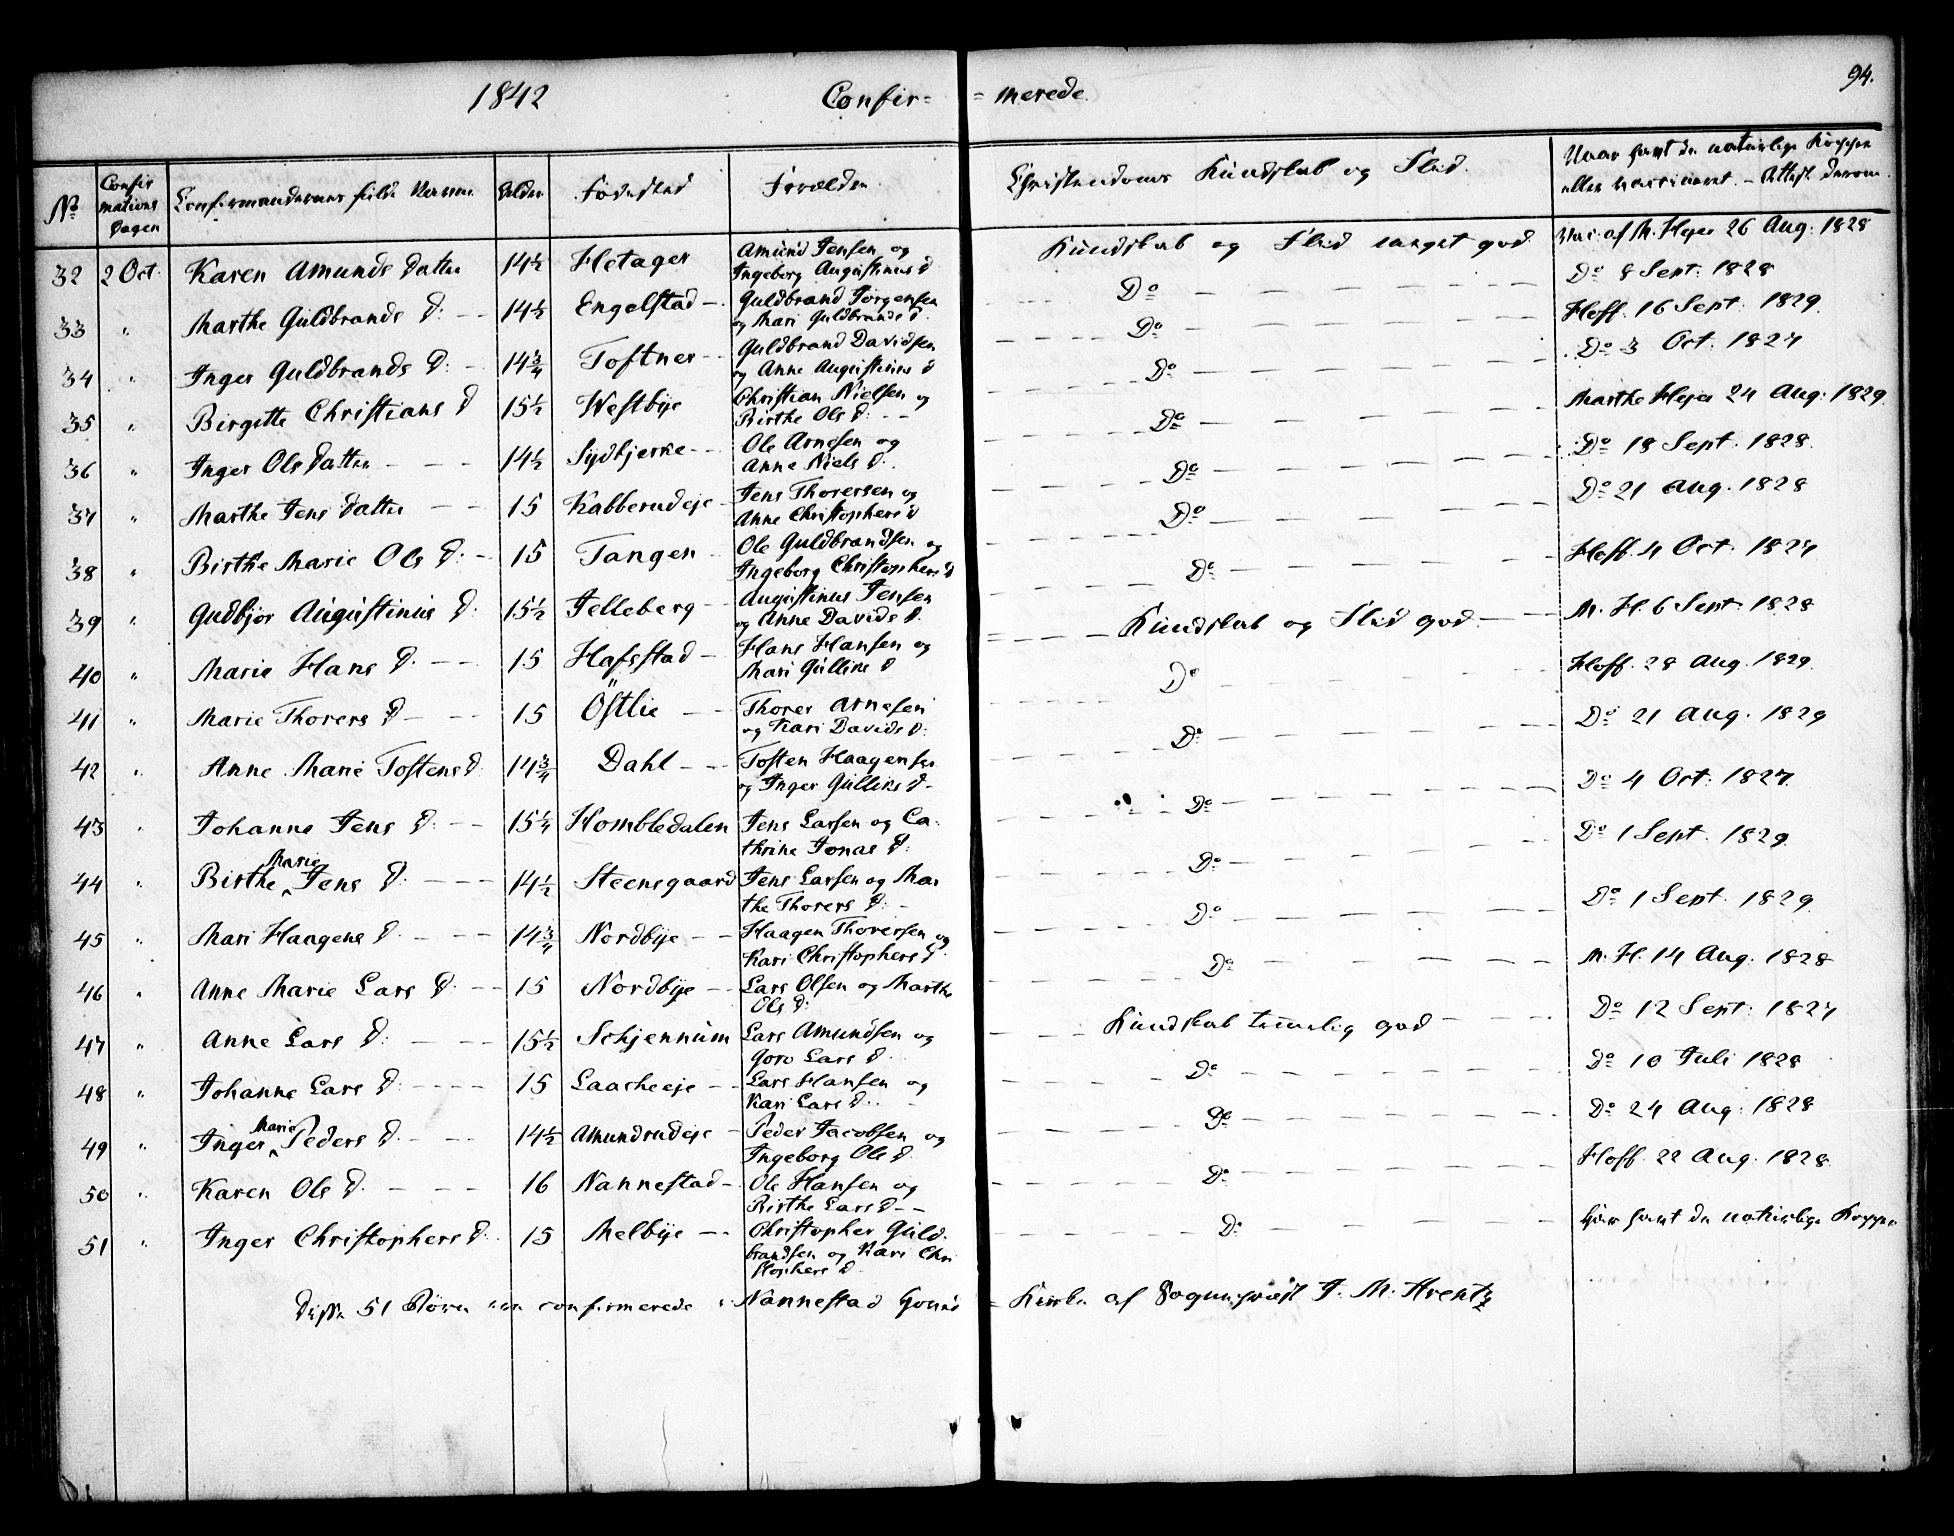 1842 Confir= =merede. 94.
No Confirmations Dagen Confirmandernes fulde Navne Alder Fødested Forældre Christendoms Kundskab og Flid. Naar havt de naturlige Kopper eller vaccineret. – Attest derom
32 2 Oct. Karen Amunds Datter 14½ Hetager Amund Jensen og Ingeborg Augustinus D Kundskab og Flid meget god Vac. af M. Hejer 26 Aug: 1828
33 " Marthe Guldbrands D: 14½ Engelstad Guldbrand Jørgensen og Mari Guldbrands D. Do Do 8 Sept: 1828
34 " Inger Guldbrands D: 14¾ Toftner Guldbrand Davidsen og Anne Augustinus D Do Hoff. 16 Sept: 1829.
35 " Birgitte Christians D 15½ Westbye Christian Nielsen og Birthe Ols D: Do Do 3 Oct: 1827
36 " Inger Ols Datter 14½ Sydbjerke Ole Arnesen og Anne Niels D. Do Marthe Hejer 24 Aug: 1829.
37 " Marthe Jens Datter 15 Kabberudeje Jens Thorersen og Anne Christophers D Do Do 18 Sept: 1828.
38 " Birthe Marie Ols D: 15 Tangen Ole Guldbrandsen og Ingeborg Christophers D Do Do 21 Aug. 1828
39 " Gudbjør Augustinus D. 15½ Jelleberg Augustinus Jensen og Anne Davids D. Do Hoff. 4 Oct: 1827
40 " Marie Hans D. 15 Hafsstad Hans Hansen og Mari Gulliks D Kundskab og Flid god M. H. 6 Sept: 1828
41 " Marie Thorers D 15 Östlie Thorer Arnesen og Kari Davids D: Do Hoff. 28 Aug. 1829.
42 " Anne Marie Tostens D: 14¾ Dahl Tosten Haagensen og Inger Gulliks D. Do Do 21 Aug. 1829
43 " Johanne Jens D: 15¼ Hombledalen Jens Larsen og Cathrine Jonas D: Do Do 4 Oct: 1827.
44 " Birthe Marie Jens D: 14½ Steensgaard Jens Larsen og Marthe Thorers D: Do Do 1 Sept. 1829.
45 " Mari Haagens D 14¾ Nordbye Haagen Thorersen og Kari Christophers D. Do Do 1 Sept. 1829.
46 " Anne Marie Lars D: 15 Nordbye Lars Olsen og Marthe Ols D: Do M. H. 14 Aug. 1828
47 " Anne Lars D: 15½ Schjennum Lars Amundsen og Goro Lars D. Kundskab temmelig god Do 12 Sept: 1827
48 " Johanne Lars D: 15 Laacheeje Lars Hansen og Kari Lars D. Do Do 10 Juli 1828
49 " Inger Marie Peders D. 14½ Amundrudeje Peder Jacobsen og Ingeborg Ols D. Do Do 24 Aug: 1828
50 " Karen Ols D. 16 Nannestad Ole Hansen og Birthe Lars D Do Hoff. 22 Aug. 1828.
51 " Inger Christophers D. 15 Melbye Christopher Guldbrandsen og Kari Christophers D. Do har havt de naturlige Kopper
Disse 51 Børn ere confirmerede i Nannestad Hoved = Kirke af Sognepræst J. M. Arentz